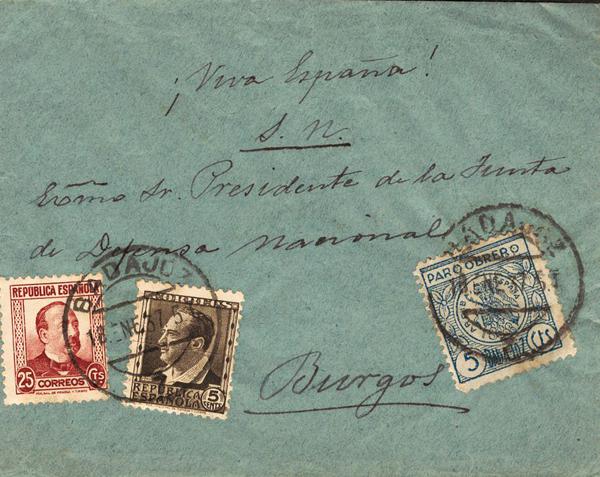 ¡Viva España!
S. N.
Exc̃mo Sr. Presidente de la Junta
de Defensa Nacional
Burgos
BADAJOZ
REPUBLICA ESPAÑOLA
25 CTS
CORREOS
BADAJOZ
REPUBLICA
ESPAÑOLA
5
CENTS
PARO OBRERO
5
BADAJOZ
CTS